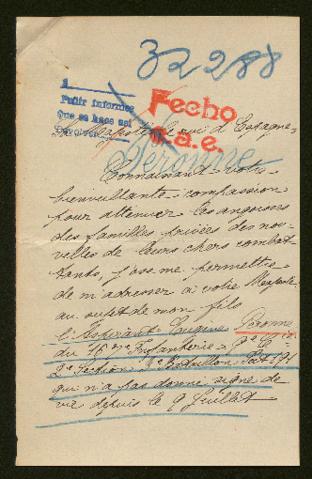 32288
1
Pedir informes
Que se hace así
Devolver
Fecho
a.e.
Sa Majesté le roi d'Espagne,
Peronne
Connaissant votre
bienveillante compassion
pour attenuer les angoisses
des familles privées des nou-
velles de leurs chers combat-
tants, j'ose me permettre
de m'adresser à votre Majesté
au sujet de mon fils
l'Aspirant Peronne
du Infanterie 9e Cie
2e Section Bataillon
qui n'a pas donné signe de
vie depuis le 9 Juillet